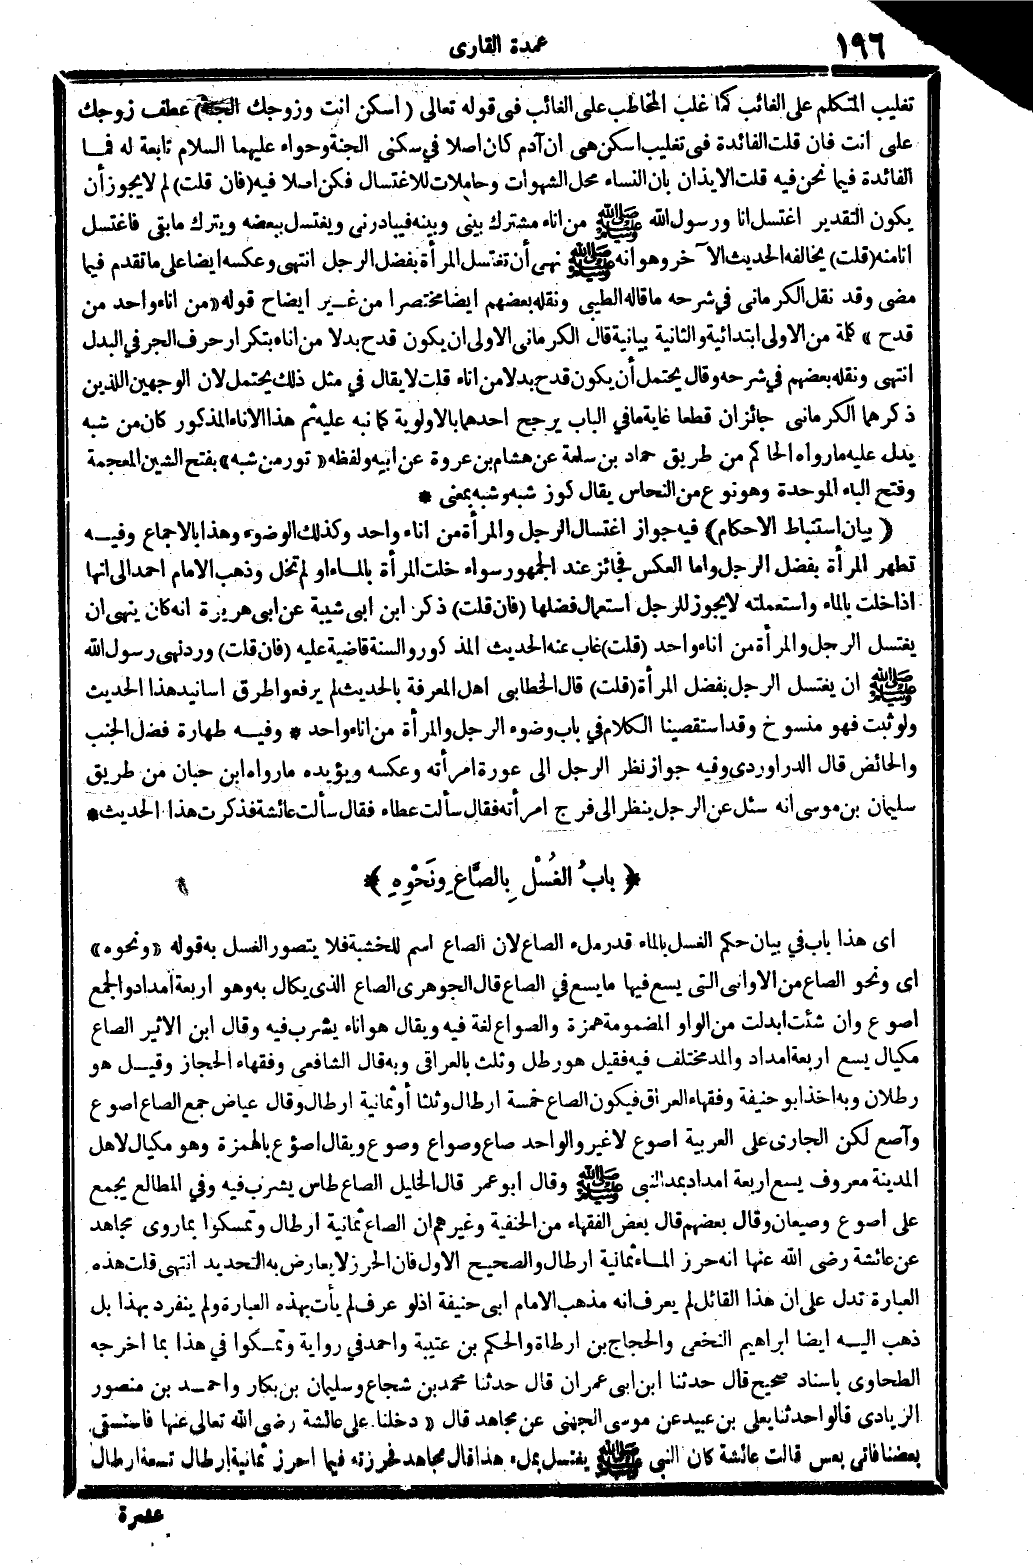 ١٩٦
عمدة القارى
تغليب المتكلم على الغائب كما غلب المخاطب على الغائب فى قوله تعالى ( اسكن انت وزوجك الجنة ) عطف زوجك
على انت فان قلت الفائدة فى تغليب اسكن هى ان آدم كان اصلا في سكنى الجنة وحواء عليهما السلام تابعة له فمــا
الفائدة فيما نحن فيه قلت الايذان بان النساء محل الشهوات وحاملات للاغتسال فكن اصلا فيه (فان قلت) لم لا يجوز أن
يكون التقدير اغتسل انا ورسول الله ﷺ من اناء مشترك بينى وبينه فيبادرنى ويغتسل ببعضه ويترك ما بقى فاغتسل
انا منه (قلت) يخالفه الحديث الآخر وهو انه ﷺ نهى أن تغتسل المرأة بفضل الرجل انتهى وعكسه ايضا على ما تقدم فيما
مضى وقد نقل الكرمانى في شرحه ما قاله الطيبى ونقله بعضهم ايضا مختصرا من غــير ايضاح قوله «من اناء واحد من
قدح » كلمة من الاولى ابتدائية والثانية بيانية قال الكرمانى الاولى ان يكون قدح بدلا من اناء بتكرار حرف الجر في البدل
انتهى ونقله بعضهم في شرحه وقال يحتمل أن يكون قدح بدلا من اناء قلت لا يقال في مثل ذلك يحتمل لان الوجهين اللذين
ذكرهما الكرمانى جائزان قطعا غاية ما في الباب يرجح احدهما بالاولوية كما نبه عليه ثم هذا الاناء المذكور كان من شبه
يدل عليه ما رواه الحاكم من طريق حماد بن سلمة عن هشام بن عروة عن ابيه ولفظه « تور من شبه » بفتح الشين المعجمة
وفتح الباء الموحدة وهو نوع من النحاس يقال كوز شبه وشبه بمعنى *
﴿ بيان استنباط الاحكام ﴾ فيه جواز اغتسال الرجل والمرأة من اناء واحد وكذلك الوضوء وهذا بالاجماع وفيــه
تطهر المرأة بفضل الرجل واما العكس فجائز عند الجمهور سواء خلت المرأة بالمــاء او لم تخل وذهب الامام احمد الى انها
اذا خلت بالماء واستعملته لا يجوز للرجل استعمال فضلها (فان قلت) ذكر ابن ابى شيبة عن ابى هريرة انه كان ينهى ان
يغتسل الرجل والمرأة من اناء واحد (قلت) غاب عنه الحديث المذكور والسنة قاضية عليه (فان قلت) ورد نهى رسول الله
ﷺ ان يغتسل الرجل بفضل المرأة (قلت) قال الخطابى اهل المعرفة بالحديث لم يرفعوا طرق اسانيد هذا الحديث
ولو ثبت فهو منسوخ وقد استقصينا الكلام في باب وضوء الرجل والمرأة من اناء واحد * وفيــه طهارة فضل الجنب
والحائض قال الدراوردى وفيه جواز نظر الرجل الى عورة امرأته وعكسه ويؤيده ما رواه ابن حبان من طريق
سليمان بن موسى انه سئل عن الرجل ينظر الى فرج امرأته فقال سألت عطاء فقال سألت عائشة فذكرت هذا الحديث *
﴿ بابُ الغُسْلِ بِالصَّاعِ ونَحْوِهِ ﴾
اى هذا باب في بيان حكم الغسل بالماء قدر ملء الصاع لان الصاع اسم للخشبة فلا يتصور الغسل به قوله «ونحوه»
اى ونحو الصاع من الاوانى التى يسع فيها ما يسع في الصاع قال الجوهرى الصاع الذى يكال به وهو اربعة أمداد والجمع
اصوع وان شئت ابدلت من الواو المضمومة همزة والصواع لغة فيه ويقال هو اناء يشرب فيه وقال ابن الاثير الصاع
مكيال يسع اربعة امداد والمد مختلف فيه فقيل هو رطل وثلث بالعراقى وبه قال الشافعى وفقهاء الحجاز وقيــل هو
رطلان وبه اخذ ابو حنيفة وفقهاء العراق فيكون الصاع خمسة ارطال وثلثا أو ثمانية ارطال وقال عياض جمع الصاع اصوع
وآصع لكن الجارى على العربية اصوع لا غير والواحد صاع وصواع وصوع ويقال اصؤع بالهمزة وهو مكيال لاهل
المدينة معروف يسع اربعة امداد بمد النبى ﷺ وقال ابو عمر قال الخليل الصاع طاس يشرب فيه وفي المطالع يجمع
على اصوع وصيعان وقال بعضهم قال بعض الفقهاء من الحنفية وغيرهم ان الصاع ثمانية ارطال وتمسكوا بما روى مجاهد
عن عائشة رضى الله عنها انه حرز المــاء ثمانية ارطال والصحيح الاول فان الحرز لا يعارض به التحديد انتهى قلت هذه
العبارة تدل على ان هذا القائل لم يعرف انه مذهب الامام ابى حنيفة اذ لو عرف لم يأت بهذه العبارة ولم ينفرد بهذا بل
ذهب اليــه ايضا ابراهيم النخعى والحجاج بن ارطاة والحكم بن عتيبة واحمد في رواية وتمسكوا في هذا بما اخرجه
الطحاوى باسناد صحيح قال حدثنا ابن ابى عمران قال حدثنا محمد بن شجاع وسليمان بن بكار واحمــد بن منصور
الزيادى قالوا حدثنا يعلى بن عبيد عن موسى الجهنى عن مجاهد قال « دخلنا على عائشة رضى الله تعالى عنها فاستسقى
بعضنا فاتى بعس قالت عائشة كان النبى ﷺ يغتسل بملء هذا قال مجاهد فحزرته فيما احرز ثمانية ارطال تسعة ارطال
عشرة